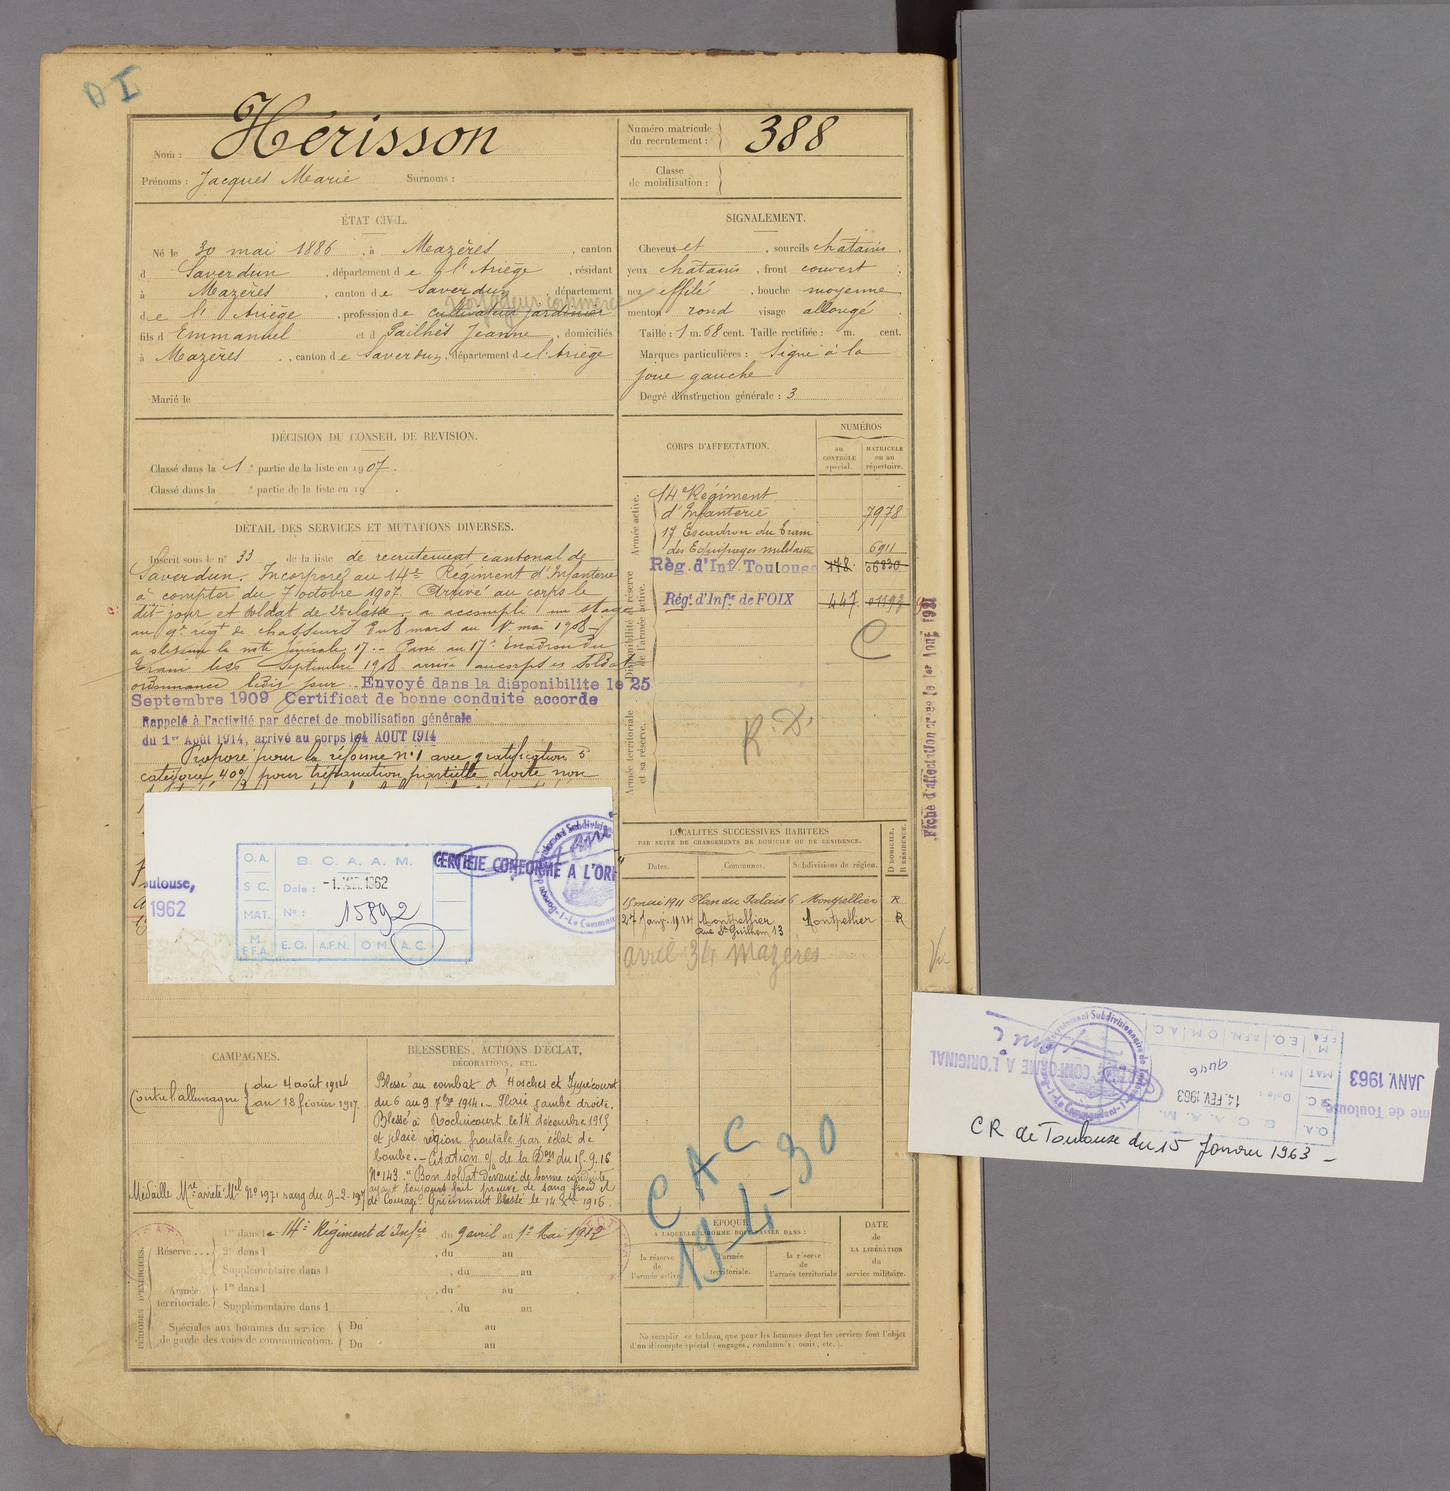 D I
Nom : Hérisson
Prénoms : Jacques Marie Surnoms :
Numéro matricule
du recrutement : 388
Classe
de mobilisation :
ÉTAT CIVIL.
Né le 30 mai 1886, à Mazères, canton
d Saverdun, département de l'Ariège, résidant
à Mazères, canton de Saverdun, département
voyageur commerce
de l'Ariège, profession de cultivateur jardinier
fils d Emmanuel et d Pailhès Jeanne, domiciliés
à Mazères, canton de Saverdun, département de l'Ariège
Marié le
SIGNALEMENT.
Cheveux et, sourcils châtains
yeux châtains, front couvert ;
nez effilé, bouche moyenne
menton rond visage allongé.
Taille : 1 m. 68 cent. Taille rectifiée : m. cent.
Marques particulières : Signe à la
joue gauche
Degré d'instruction générale : 3
DÉCISION DU CONSEIL DE REVISION.
Classé dans la 1e partie de la liste en 1907.
Classé dans la e partie de la liste en 19 .
DÉTAIL DES SERVICES ET MUTATIONS DIVERSES.
Inscrit sous le n° 33 de la liste de recrutement cantonal de
Saverdun. Incorporé au 14e Régiment d'Infanterie
à compter du 7 octobre 1907. Arrivé au corps le
dit jour et soldat de 2e classe, a accompli un stage
au 9e régt de chasseurs du 8 mars au 1er mai 1908
17. - Passé au 17e Escadron du
train le Septembre 1908 arrivé au corps et soldat
ordonnance ledit jour. Envoyé dans la disponibilite le 25
Septembre 1909 Certificat de bonne conduite accorde
Rappelé à l'activité par décret de mobilisation générale
du 1er Août 1914, arrivé au corps le 4 AOUT 1914
Proposé pour la réforme n°1 avec gratification 5
catégorie 40% pour trépanation partielle droite non
oulouse,
1962
O.A.
S C.
MAT.
M.
F.F.A.
B. C. A. A. M.
Date : -1. 1962
N° : 15892
E. O. A.F.N. O M. A. C.
CERTIFIE CONFORME A L'ORI
CORPS D'AFFECTATION.
NUMÉROS
au
CONTRÔLE
spécial.
MATRICULE
ou au
répertoire.
Armée active.
14e Régiment
d'Infanterie 7978
17 Escadron du train
des Equipages militaires 6911
Disponibilité et réserve
de l'armée active.
Règ. d'Inf. Toulouse 178 06830
Régt d'Infie de FOIX 447 01192
C
Armée territoriale
et sa réserve.
R. D.
Fiche d'affectation créée le 1er Aout 1931
LOCALITÉS SUCCESSIVES HABITÉES
PAR SUITE DE CHANGEMENTS DE DOMICILE OU DE RÉSIDENCE.
Dates. Communes. Subdivisions de région. D DOMICILE. R RÉSIDENCE.
15 mai 1911 Plan du Palais 6 Montpellier R
27 janv. 1914 Montpellier Montpellier R
rue St Guilhem 13
avril 34 Mazères
Vu
CAMPAGNES.
Contre l'allemagne du 4 août 1914
au 18 février 1917.
Médaille Mre arrêté Mel N° 1971 rang du 9-2-197
BLESSURES, ACTIONS D'ÉCLAT,
DÉCORATIONS, ETC.
Blessé au combat d'Hosches et Ippécourt
du 6 au 9 7bre 1914. - Plaie jambe droite.
Blessé à Roclincourt le 14 décembre 1915
et plaie région frontale par éclat de
bombe. - Citation o/ de la Don du 15.9.16
N° 143. "Bon soldat dévoué de bonne conduite
ayant toujours fait preuve de sang froid et
de courage Grièvement blessé le 14 Xbre 1915.
CAC
19-4-30
PÉRIODES D'EXERCICES.
Réserve .... 1re dans le 14e Régiment d'Infie, du 9 avril au 1er Mai 1912
2e dans l , du au
Supplémentaire dans l , du au
Armée
territoriale. 1re dans l , du au
Supplémentaire dans l , du au
Spéciales aux hommes du service
de garde des voies de communication. Du au
Du au
ÉPOQUE
A LAQUELLE L'HOMME DOIT PASSER DANS :
la réserve
de
l'armée active
l'armée
territoriale.
la réserve
de
l'armée territoriale
DATE
de
LA LIBÉRATION
du
service militaire.
Ne remplir ce tableau, que pour les hommes dont les services font l'objet
d'un décompte spécial (engagés, condamnés, omis, etc.).
JANV. 1963
me de Toulouse
CERTIFIE CONFORME A L'ORIGINAL
B. C. A. A. M.
Date : 14. FEV. 1963
N° : 9446
O.A.
S.C.
MAT.
M
FFA
E.O. A.F.N. O M A.C.
CR de Toulouse du 15 Janvier 1963 -